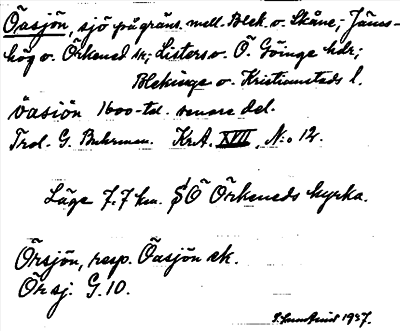 Öasjön, sjö på gräns. mell. Blek. o. Skåne; Jäms-
hög o. Örkened sn; Listers o. Ö. Göinge hdr;
Blekinge o. Kristianstads l.
öasiön 1600-tal. senare del.
Trol. G. Buhrman. KrA. XVII, N:o 12.
Läge 7,7 km. SÖ Örkeneds kyrka.
Örsjön, resp. Öasjön ek.
Örsj. G.10.
1937.